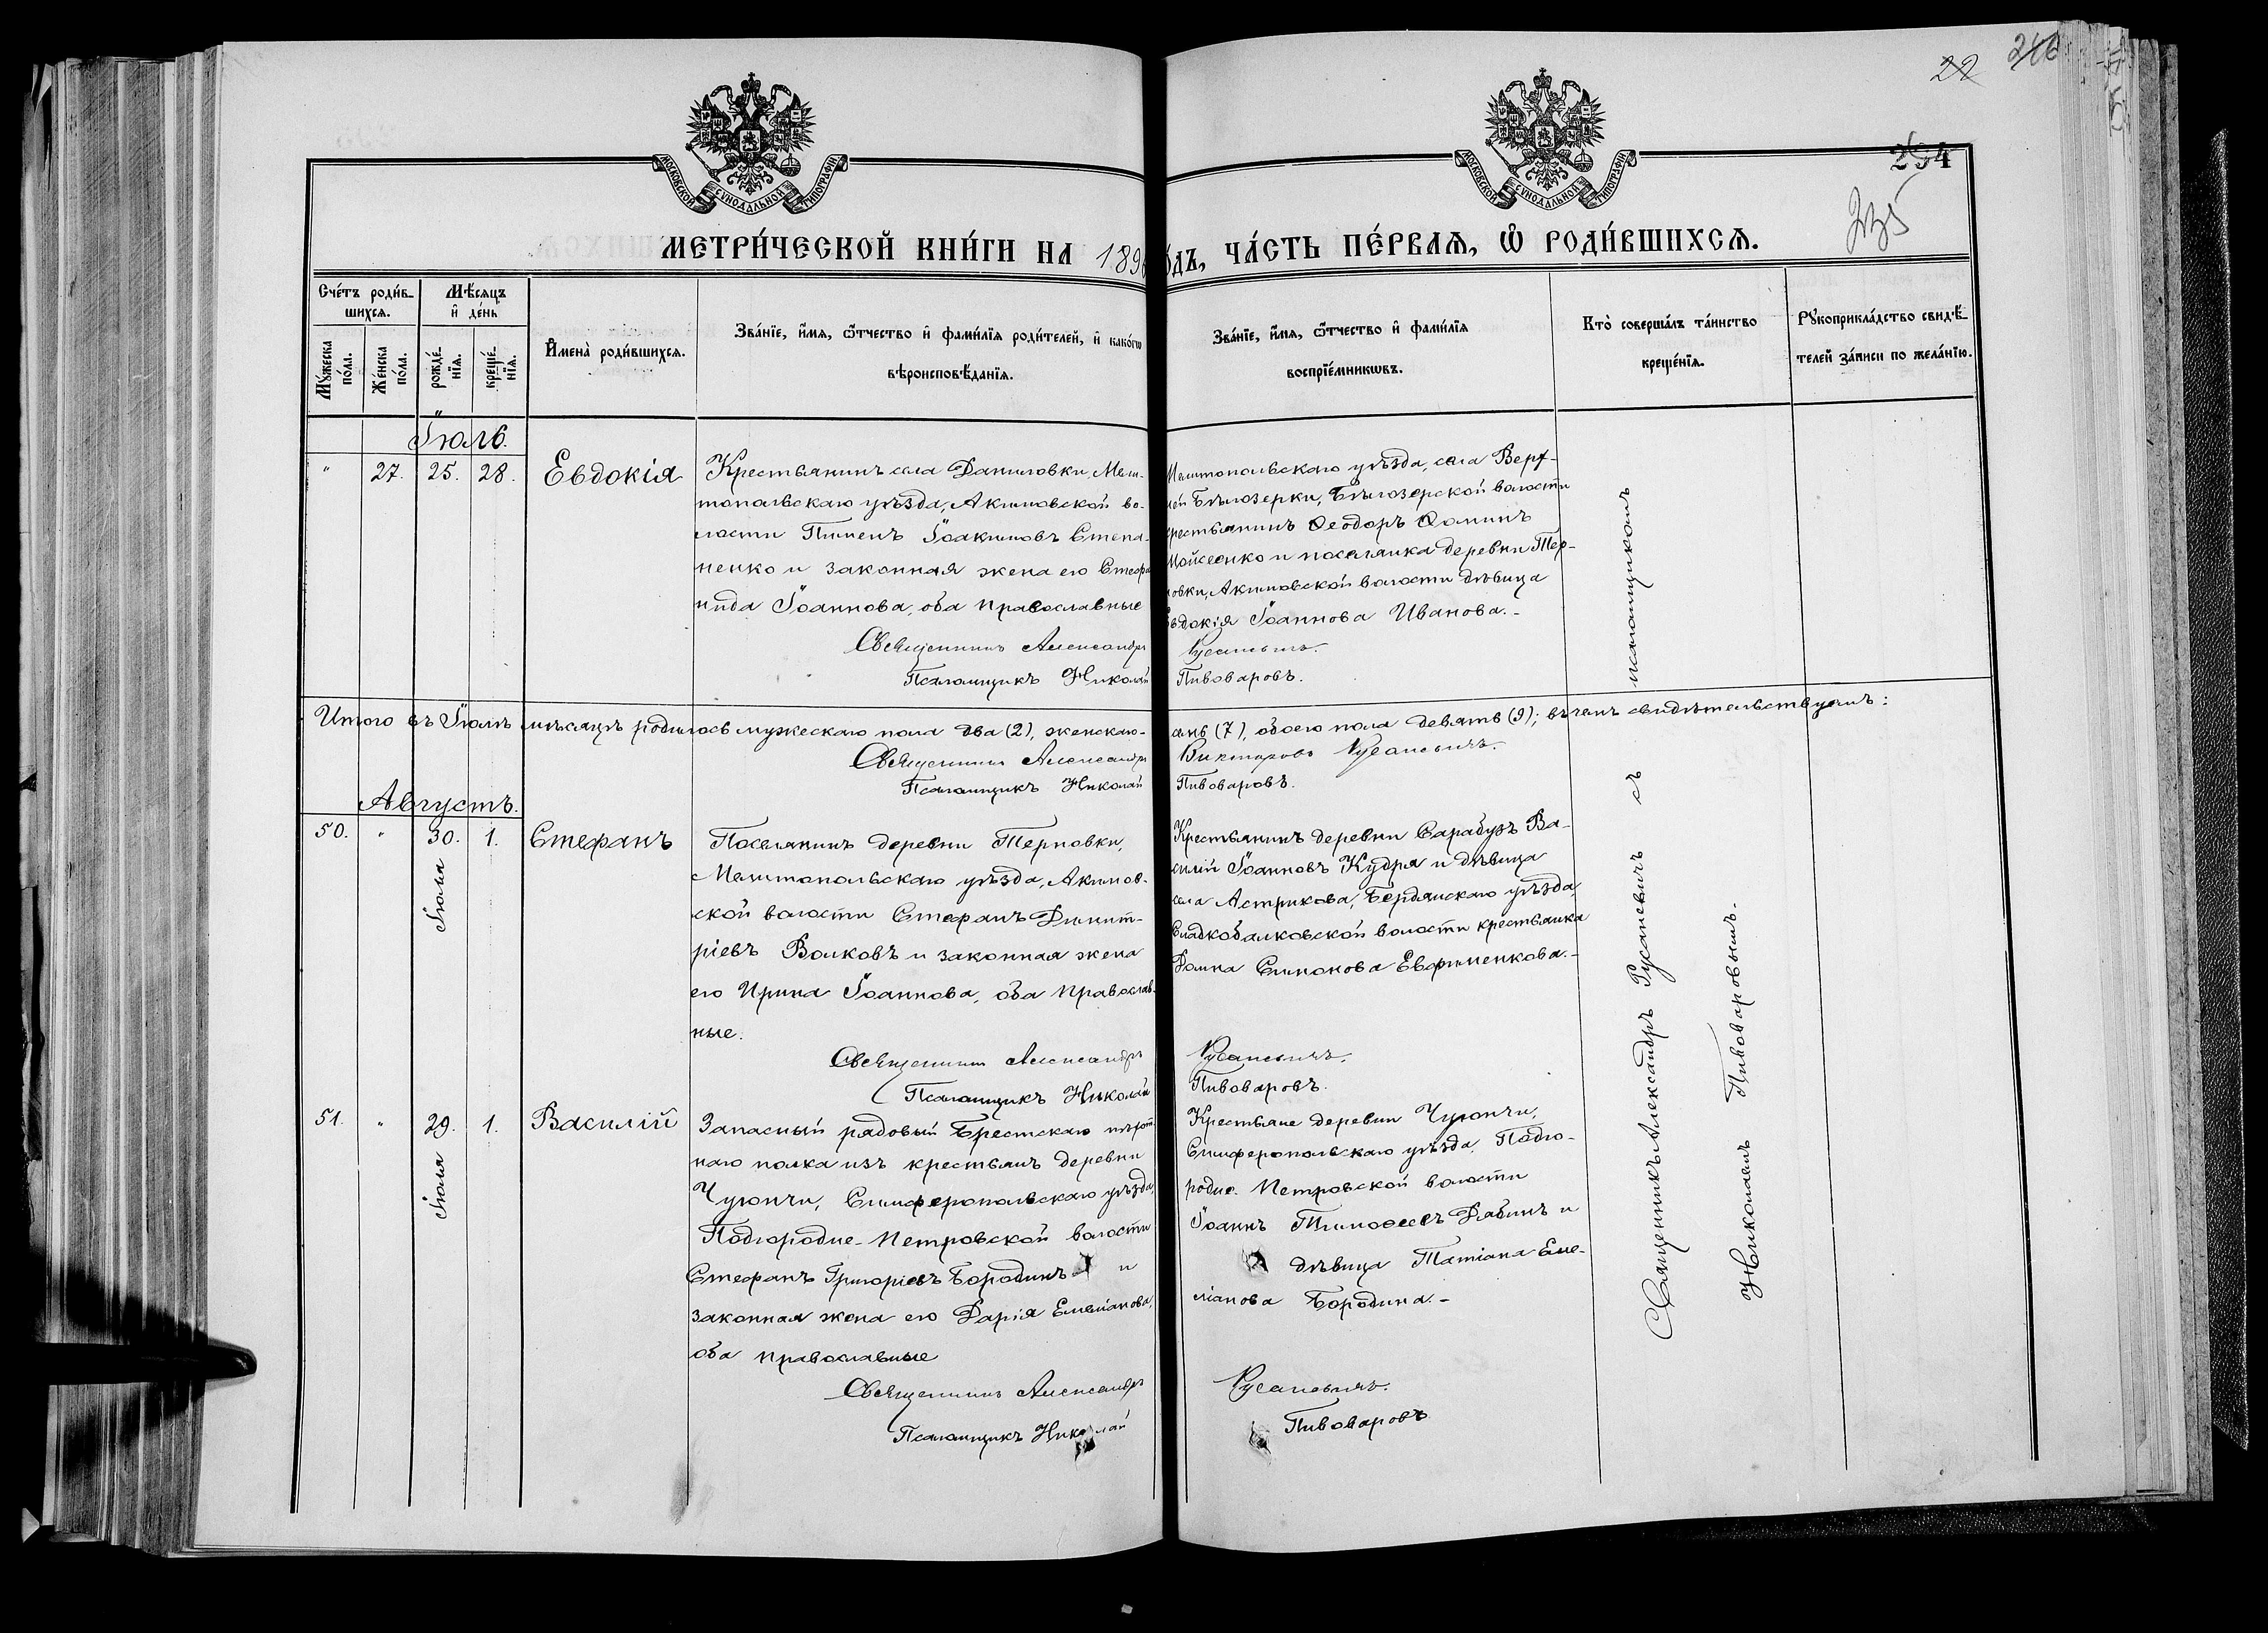 22
МОСКОВСКОЙ СУНОДАЛЬНОЙ ТИПОГРАФІИ
МОСКОВСКОЙ СУНОДАЛЬНОЙ ТИПОГРАФІИ
МЕТРИ́ЧЕСКОЙ КНИ́ГИ НА 189
О́ДЪ, ЧА́СТЬ ПЕ́РВАЯ, Ѿ РОДИ́ВШИХСЯ.
Сче́тъ роди́в-
шихся.
Мѣ́сяцъ
и҆ де́нь
Мꙋ́жеска по́ла.
Же́нска по́ла.
рожде́-нїя.
креще́-нїя.
И҆мена̀ роди́вшихся.
Зва́нїе, и҆́мя, ѻ҆́тчество и҆ фами́лїя роди́телей, и҆ како́гѡ
вѣроисповѣ́данїя.
Зва́нїе, и҆́мя, ѻ҆́тчество и҆ фами́лїя
воспрїе́мникѡвъ.
Кто̀ соверша́лъ та́инство
креще́нїя.
Рꙋкоприкла́дство свидѣ́-
телей за́писи по жела́нїю.
Іюль.
" 27. 25. 28. Евдокія
Крестьянинъ села Даниловки, Мели-
топольскаго уѣзда, Акимовской во-
лости Пименъ Іоакимовъ Степа-
ненко и законная жена его Стефа
нида Іоаннова, оба православные
Священникъ Александръ
Псаломщикъ Николай
Мелитопольскаго уѣзда, села Верх-
ней Бѣлозерки, Бѣлозерской волости
крестьянинъ Ѳеодоръ Ѳоминъ
Мойсеенко и поселянка деревни Тер-
новки, Акимовской волости дѣвица
Евдокія Іоаннова Иванова.-
Русаневичъ.
Пивоваровъ.
Итого въ Іюлѣ мѣсяцѣ родилось мужескаго пола два (2), женскаго-
семь (7), обоего пола девять (9); въ чемъ свидѣтельствуемъ:
Священникъ Александръ
Викторовъ Русаневичъ.
Псаломщикъ Николай
Пивоваровъ.
Августъ.
50. " 30. 1. Стефанъ
Іюля
Поселянинъ деревни Терновки,
Мелитопольскаго уѣзда, Акимов-
ской волости Стефанъ Димит-
ріевъ Волковъ и законная жена
его Ирина Іоаннова, оба православ-
ные.
Священникъ Александръ
Псаломщикъ Николай
Крестьянинъ деревни Сарабузъ Ва-
силій Іоанновъ Кудря и дѣвица
села Астрикова, Бердянскаго уѣзда,
Сладкобалковской волости крестьянка
Домна Симонова Ефименкова.-
Русаневичъ.
Пивоваровъ.
51. " 29. 1. Василій
Іюля
Запасный рядовый Брестскаго пѣхот-
наго полка изъ крестьянъ деревни
Чуюнчи, Симферопольскаго уѣзда,
Подгородне-Петровской волости
Стефанъ Григоріевъ Бородинъ и
законная жена его Дарія Емеліанова,
оба православные
Священникъ Александръ
Псаломщикъ Николай
Крестьяне деревни Чуюнчи,
Симферопольскаго уѣзда, Подго-
родне-Петровской волости
Іоаннъ Тимоѳеевъ Дябинъ и
дѣвица Татіана Еме-
ліанова Бородина.-
Русаневичъ.
Пивоваровъ
Священникъ Александръ Русаневичъ съ псаломщикомъ
Николаемъ Пивоваровымъ.-